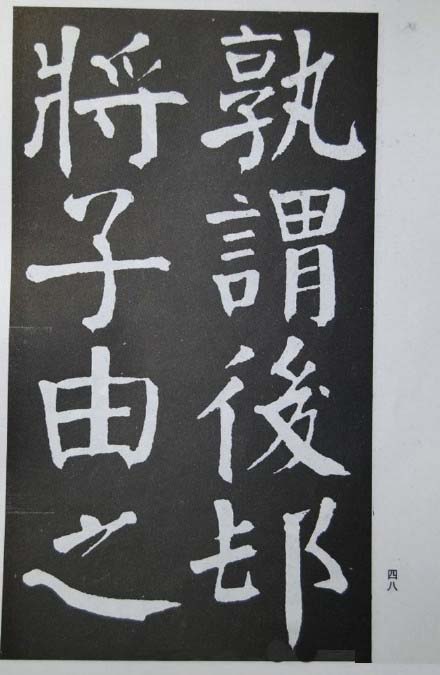 孰謂後邨
將子由之
四八